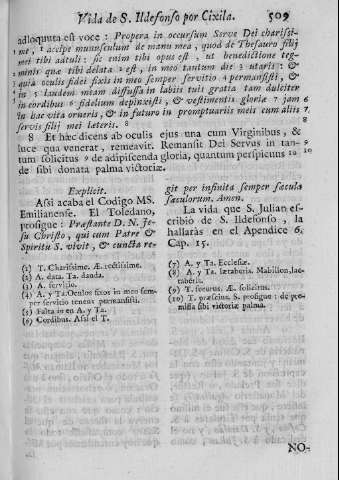 Vida de S. Ildefonso por Cixila. 509
adloquuta est voce : Propera in occursum Serve Dei charissi-
me , 1 accipe munusculum de manu mea , quod de Thesauro filij
mei tibi adtuli : sic enim tibi opus est , ut benedictione teg-
minis quæ tibi delata 2 est , in meo tantum die 3 utaris : &
quia oculis fidei fixis in meo semper servitio 4 permansisti , &
in 5 laudem miam diffusa in labiis tuis gratia tam dulciter
in cordibus 6 fidelium depinxisti , & vestimentis gloriæ 7 jam 6
in hac vita orneris , & in futuro in promptuariis meis cum aliis 7
servis filij mei leteris. 8 8
8 Et hæc dicens ab oculis ejus una cum Virginibus, &
luce qua venerat, remeavit. Remansit Dei Servus in tan-
tum solicitus 9 de adipiscenda gloria, quantum perspicuus 10 10
de sibi donata palma victoriæ.
Explicit.
Assi acaba el Codigo MS.
Emilianense. El Toledano,
prosigue : Præstante D. N. Je-
su Christo, qui cum Patre &
Spiritu S. vivit, & cuncta re-
git per infinita semper sæcula
sæculorum. Amen.
La vida que S. Julian es-
cribio de S. Ildefonso , la
hallaràs en el Apendice 6.
Cap. 15.
(1) T. Charissime. Æ. rectissime.
(2) A. data. Ta. danda.
(3) A. servitio.
(4) A. y Ta. Oculos fixos in meo sem-
per servitio tenens permansisti.
(5) Falta in en A. y Ta.
(6) Cordibus. Assi el T.
(7) A. y Ta. Ecclesiæ.
(8) A. y Ta. lætaberis. Mabillon, læ-
taberis.
(9) T. securus. Æ. solicitus.
(10) T. præscius. S. prosigue : de pro-
missa sibi victoriæ palma.
NO-